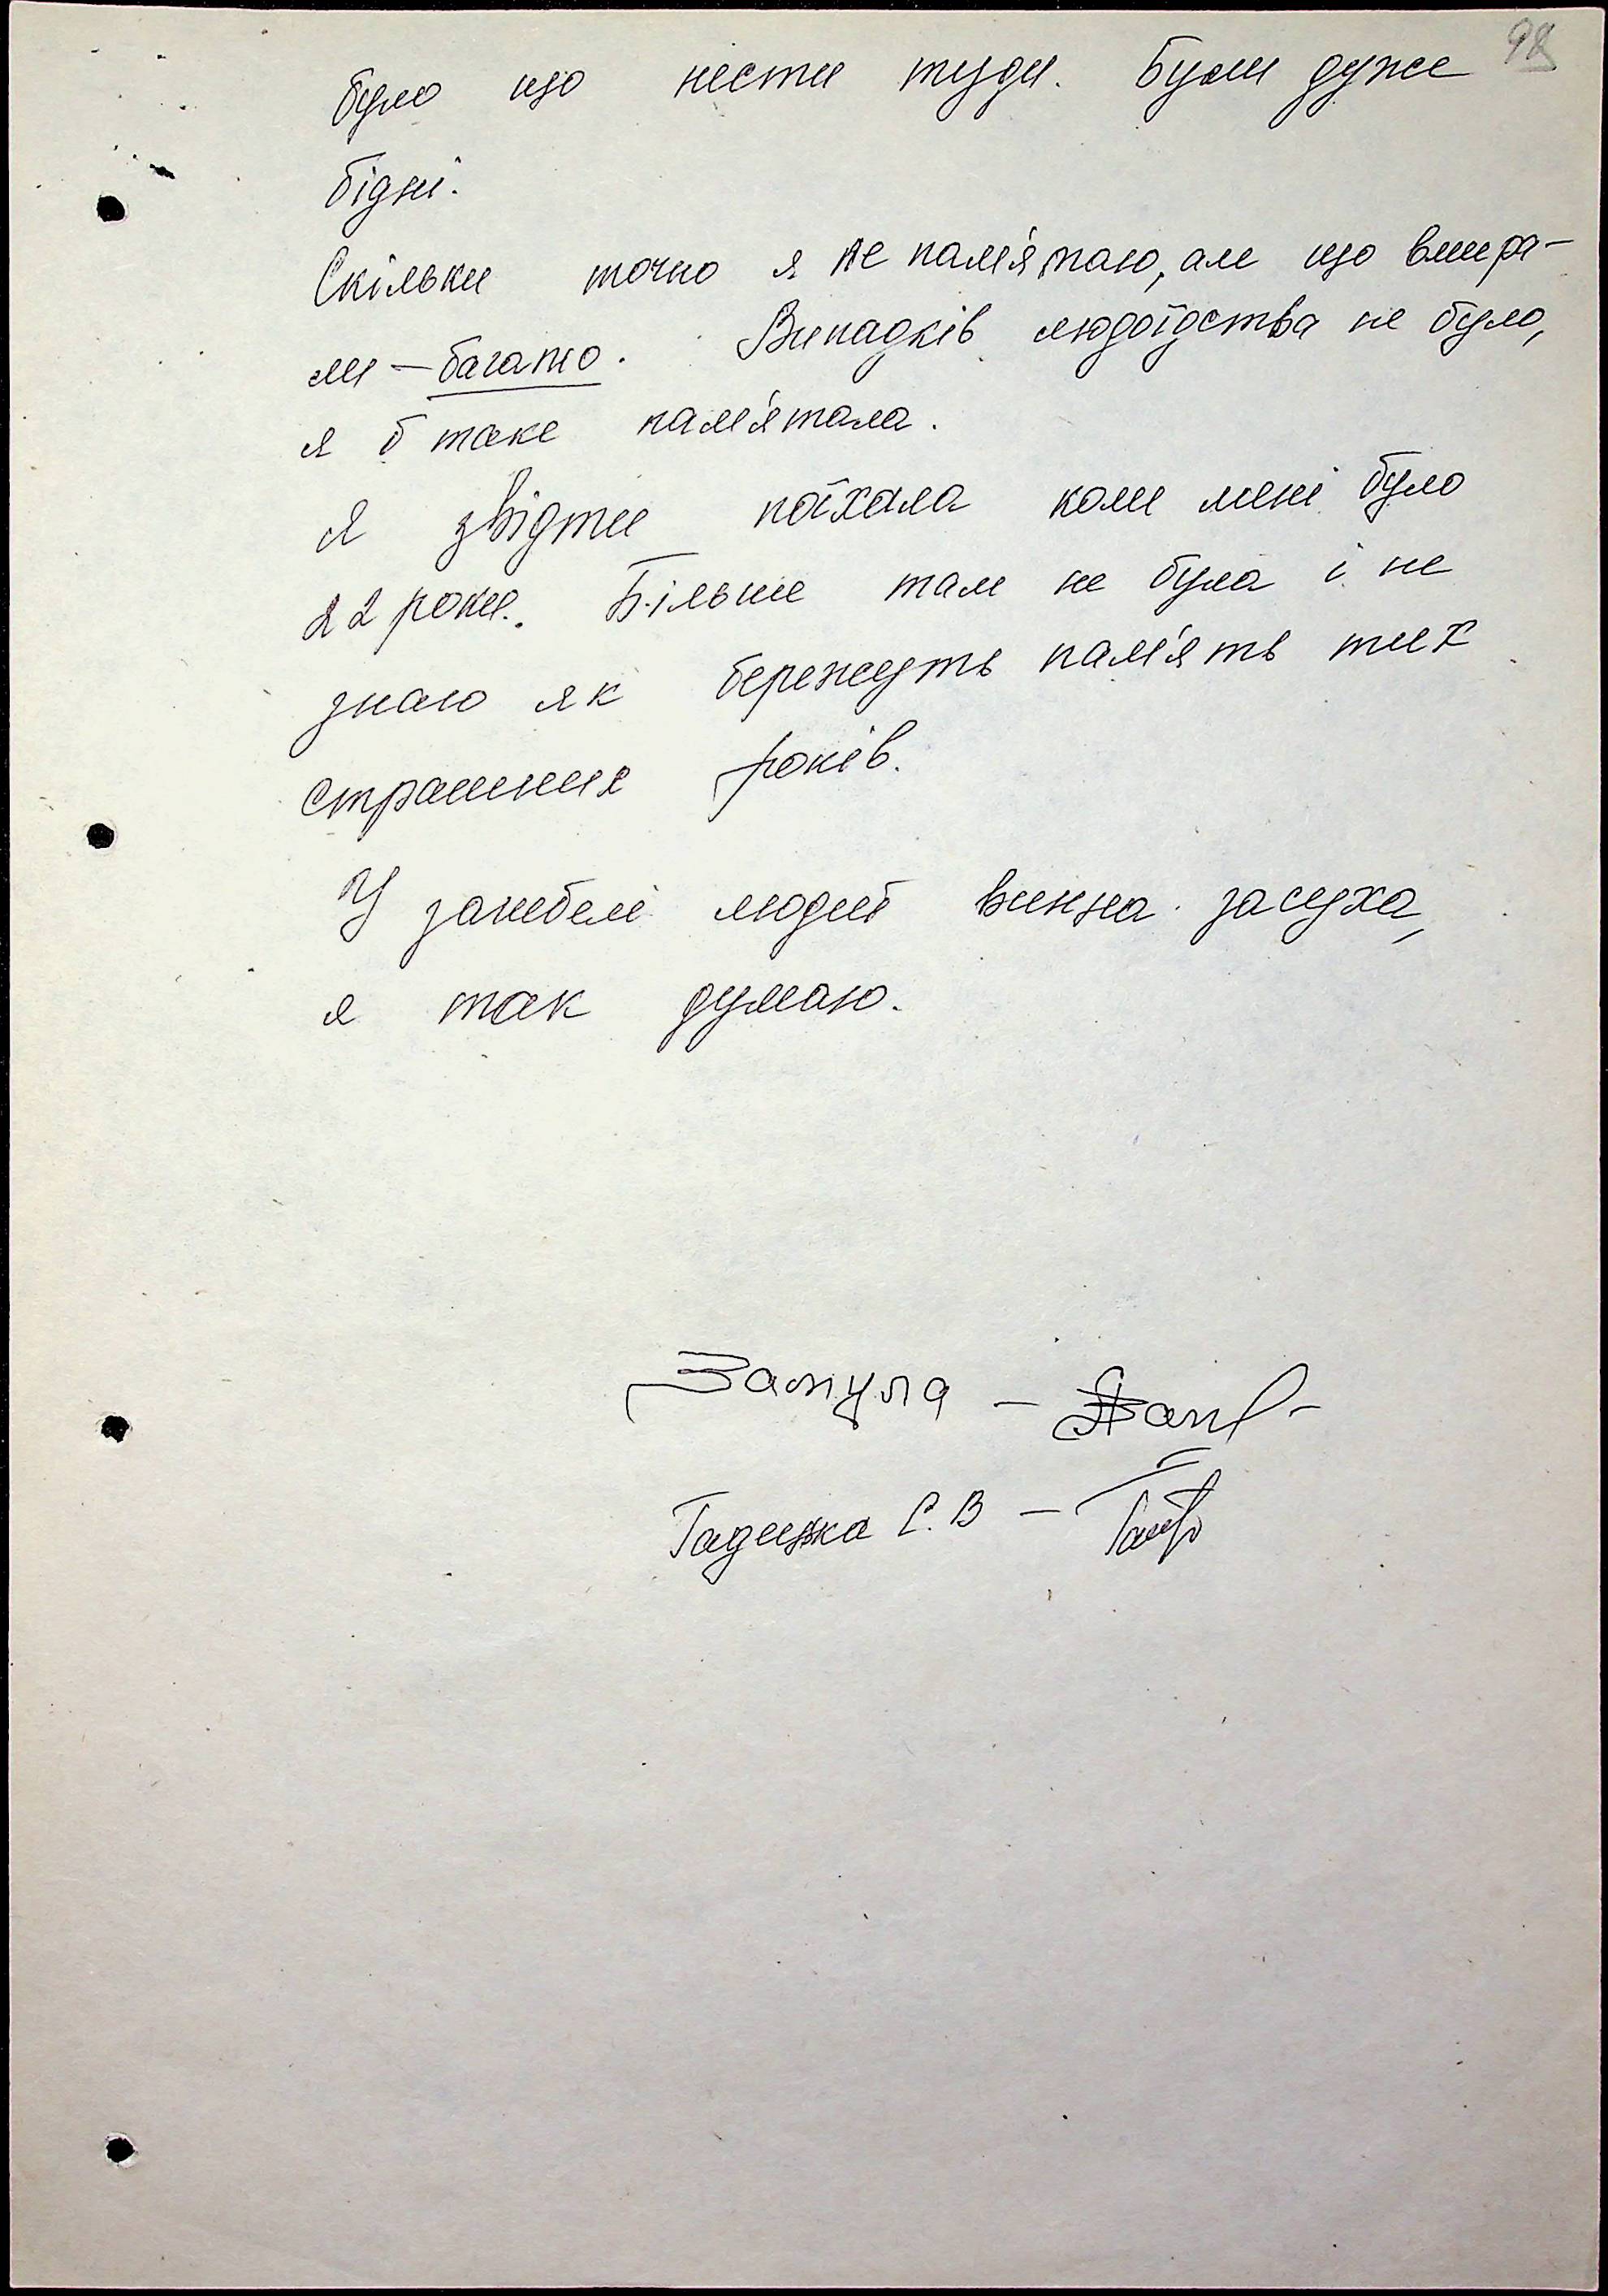 98
було що нести туди. Були дуже
бідні.
Скільки точно я не пам'ятаю, але що вмира-
ли – багато. Випадків людоїдства не було,
я б таке пам'ятала.
Я звідти поїхала коли мені було
22 роки. Більше там не була і не
знаю як бережуть пам'ять тих
страшних років.
У загибелі людей винна засуха,
я так думаю.
Замула –
Гадецка С. В –